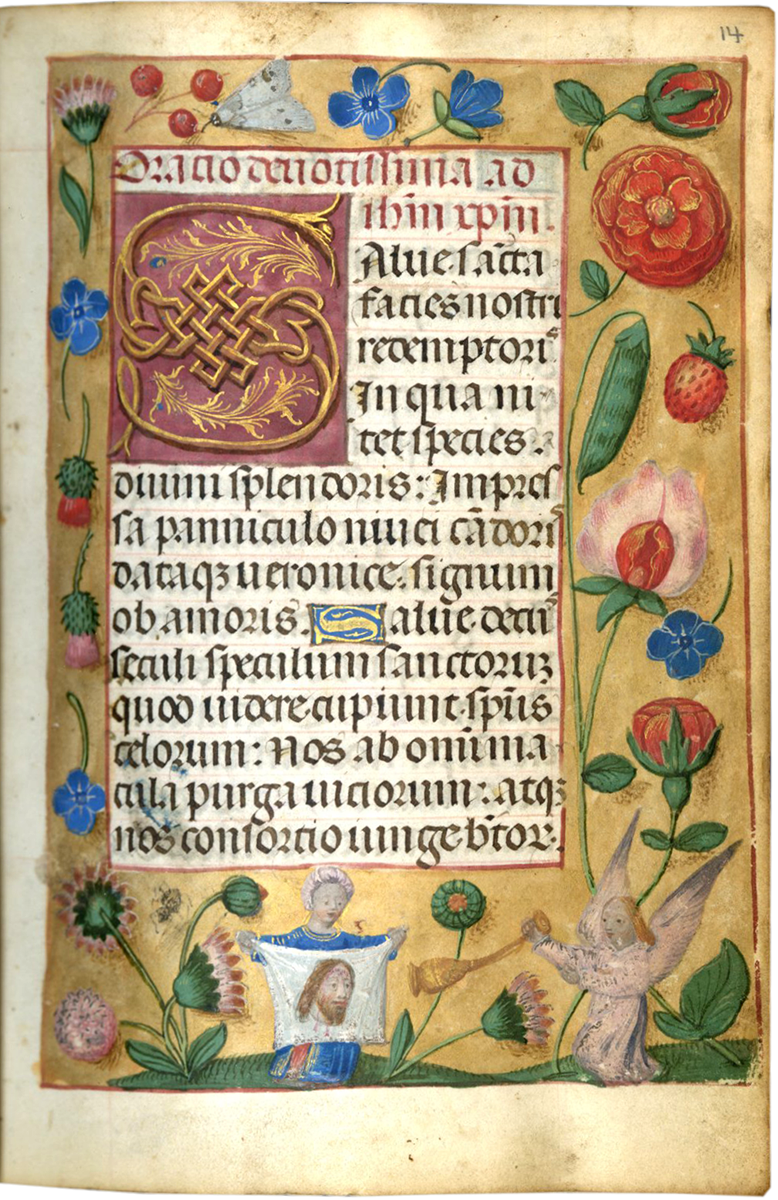 14
Oracio deuotissima ad
ihm̄ xpm̄.
Alue sācta
facies nostri
redemptoris
In qua ni
tet species.
diuini splendoris: Impres
sa panniculo niuei cādoris
dataqꝫ ueronice. signum
ob amoris. Salue decus
seculi speculum sanctoruꝫ
quod uidere cupiunt spūs
celorum: Nos ab omni ma
cula purga uiciorum: atqꝫ
nos consortio iunge bt̄oꝝ.